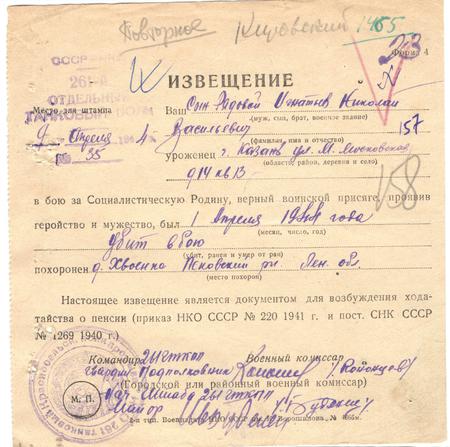 Повторное Кировский 1455
Форма 4
СССР
261-й
ОТДЕЛЬНЫЙ
ТАНКОВЫЙ ПОЛК
ИЗВЕЩЕНИЕ
Место для штампа
Ваш Сын Рядовой Игнатьев Николай
(муж, сын, брат, военное звание)
9 Апреля 194
№ 35
Васильевич
157
(фамилия, имя и отчество)
уроженец г. Казань ул. М. Московская
(область, район, деревня и село)
д 14 кв 13
158
в бою за Социалистическую Родину, верный воинской присяге, проявив
геройство и мужество, был 1 Апреля 1944 года
(месяц, число, год)
убит в бою
(убит, ранен и умер от ран)
похоронен д. Хвоенка Псковский рн Лен. обл.
(место похорон)
Настоящее извещение является документом для возбуждения хода-
тайства о пенсии (приказ НКО СССР № 220 1941 г. и пост. СНК СССР
№ 1269 1940 г.)
Командир 261 гткп
Военный комиссар
гвардии Подполковник
(Городской или районный военный комиссар)
М. П.
Нач. Штаба 261 гткп
Майор
261 ТАНКОВЫЙ